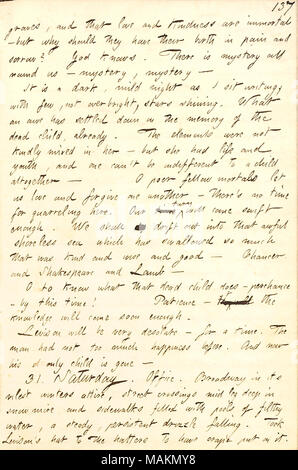 137
graves, and that love and kindness are immortal
- but why should they have their birth in pain and
sorrow? God knows. There is mystery all
round us - mystery, mystery -
It is a dark, mild night as I sit writing,
with few, not over bright, stars shining. What
an awe has settled down in the memory of the
dead child, already. The elements were not
kindly mixed in her - but she had life and
youth, and one can't be indifferent to a child
altogether - O poor fellow mortals let
us love and forgive one another - there's no time
for quarreling here. Our turn will come swift
enough. We shall drift out into that awful
shoreless sea which has swallowed so much
that was kind and wise and good - Chaucer
and Shakespeare and Lamb -
O to know what that dead child does - perchance
- by this time! Patience - the
knowledge will come soon enough.
Levison will be very desolate - for a time. The
man had not too much happiness before. And now
his only child is gone -
31. Saturday. Office. Broadway in its
vilest winters attire, street crossings mid leg deep in
snow mire and sidewalks filled with pools of filthy
water, a steady, persistent drizzle falling. Took
Levison's hat to the hatters to have crape put on it.
alamy
Image ID: MAKMY8
www.alamy.com